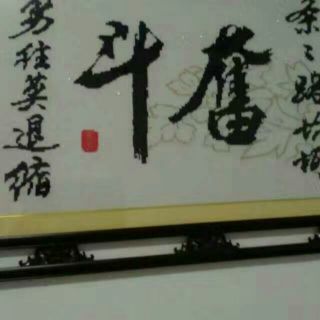 条々路坎坷
奮斗
勇往莫退缩